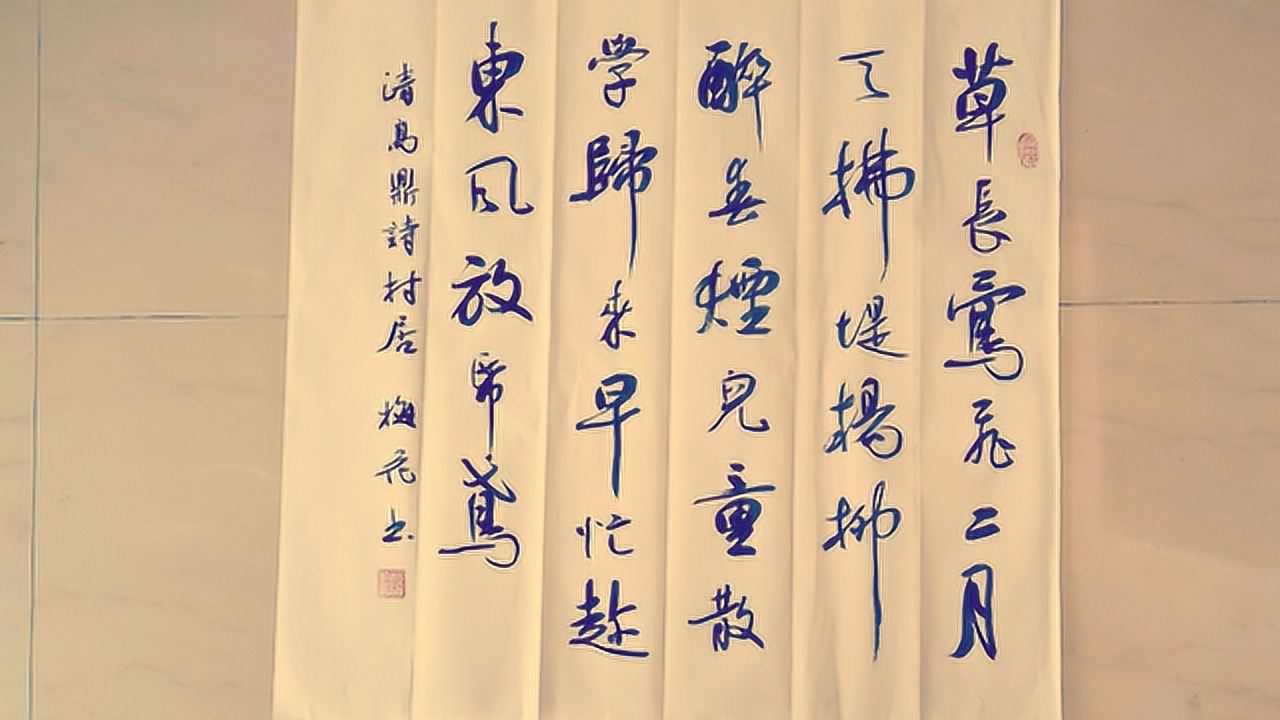 草長鶯飛二月
天拂堤楊柳
醉春煙兒童散
学歸来早忙趂
東風放帋鳶
清高鼎詩村居 梅花书